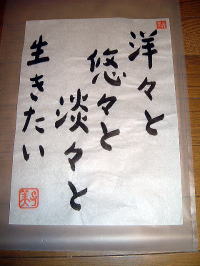 洋々と
悠々と
淡々と
生きたい